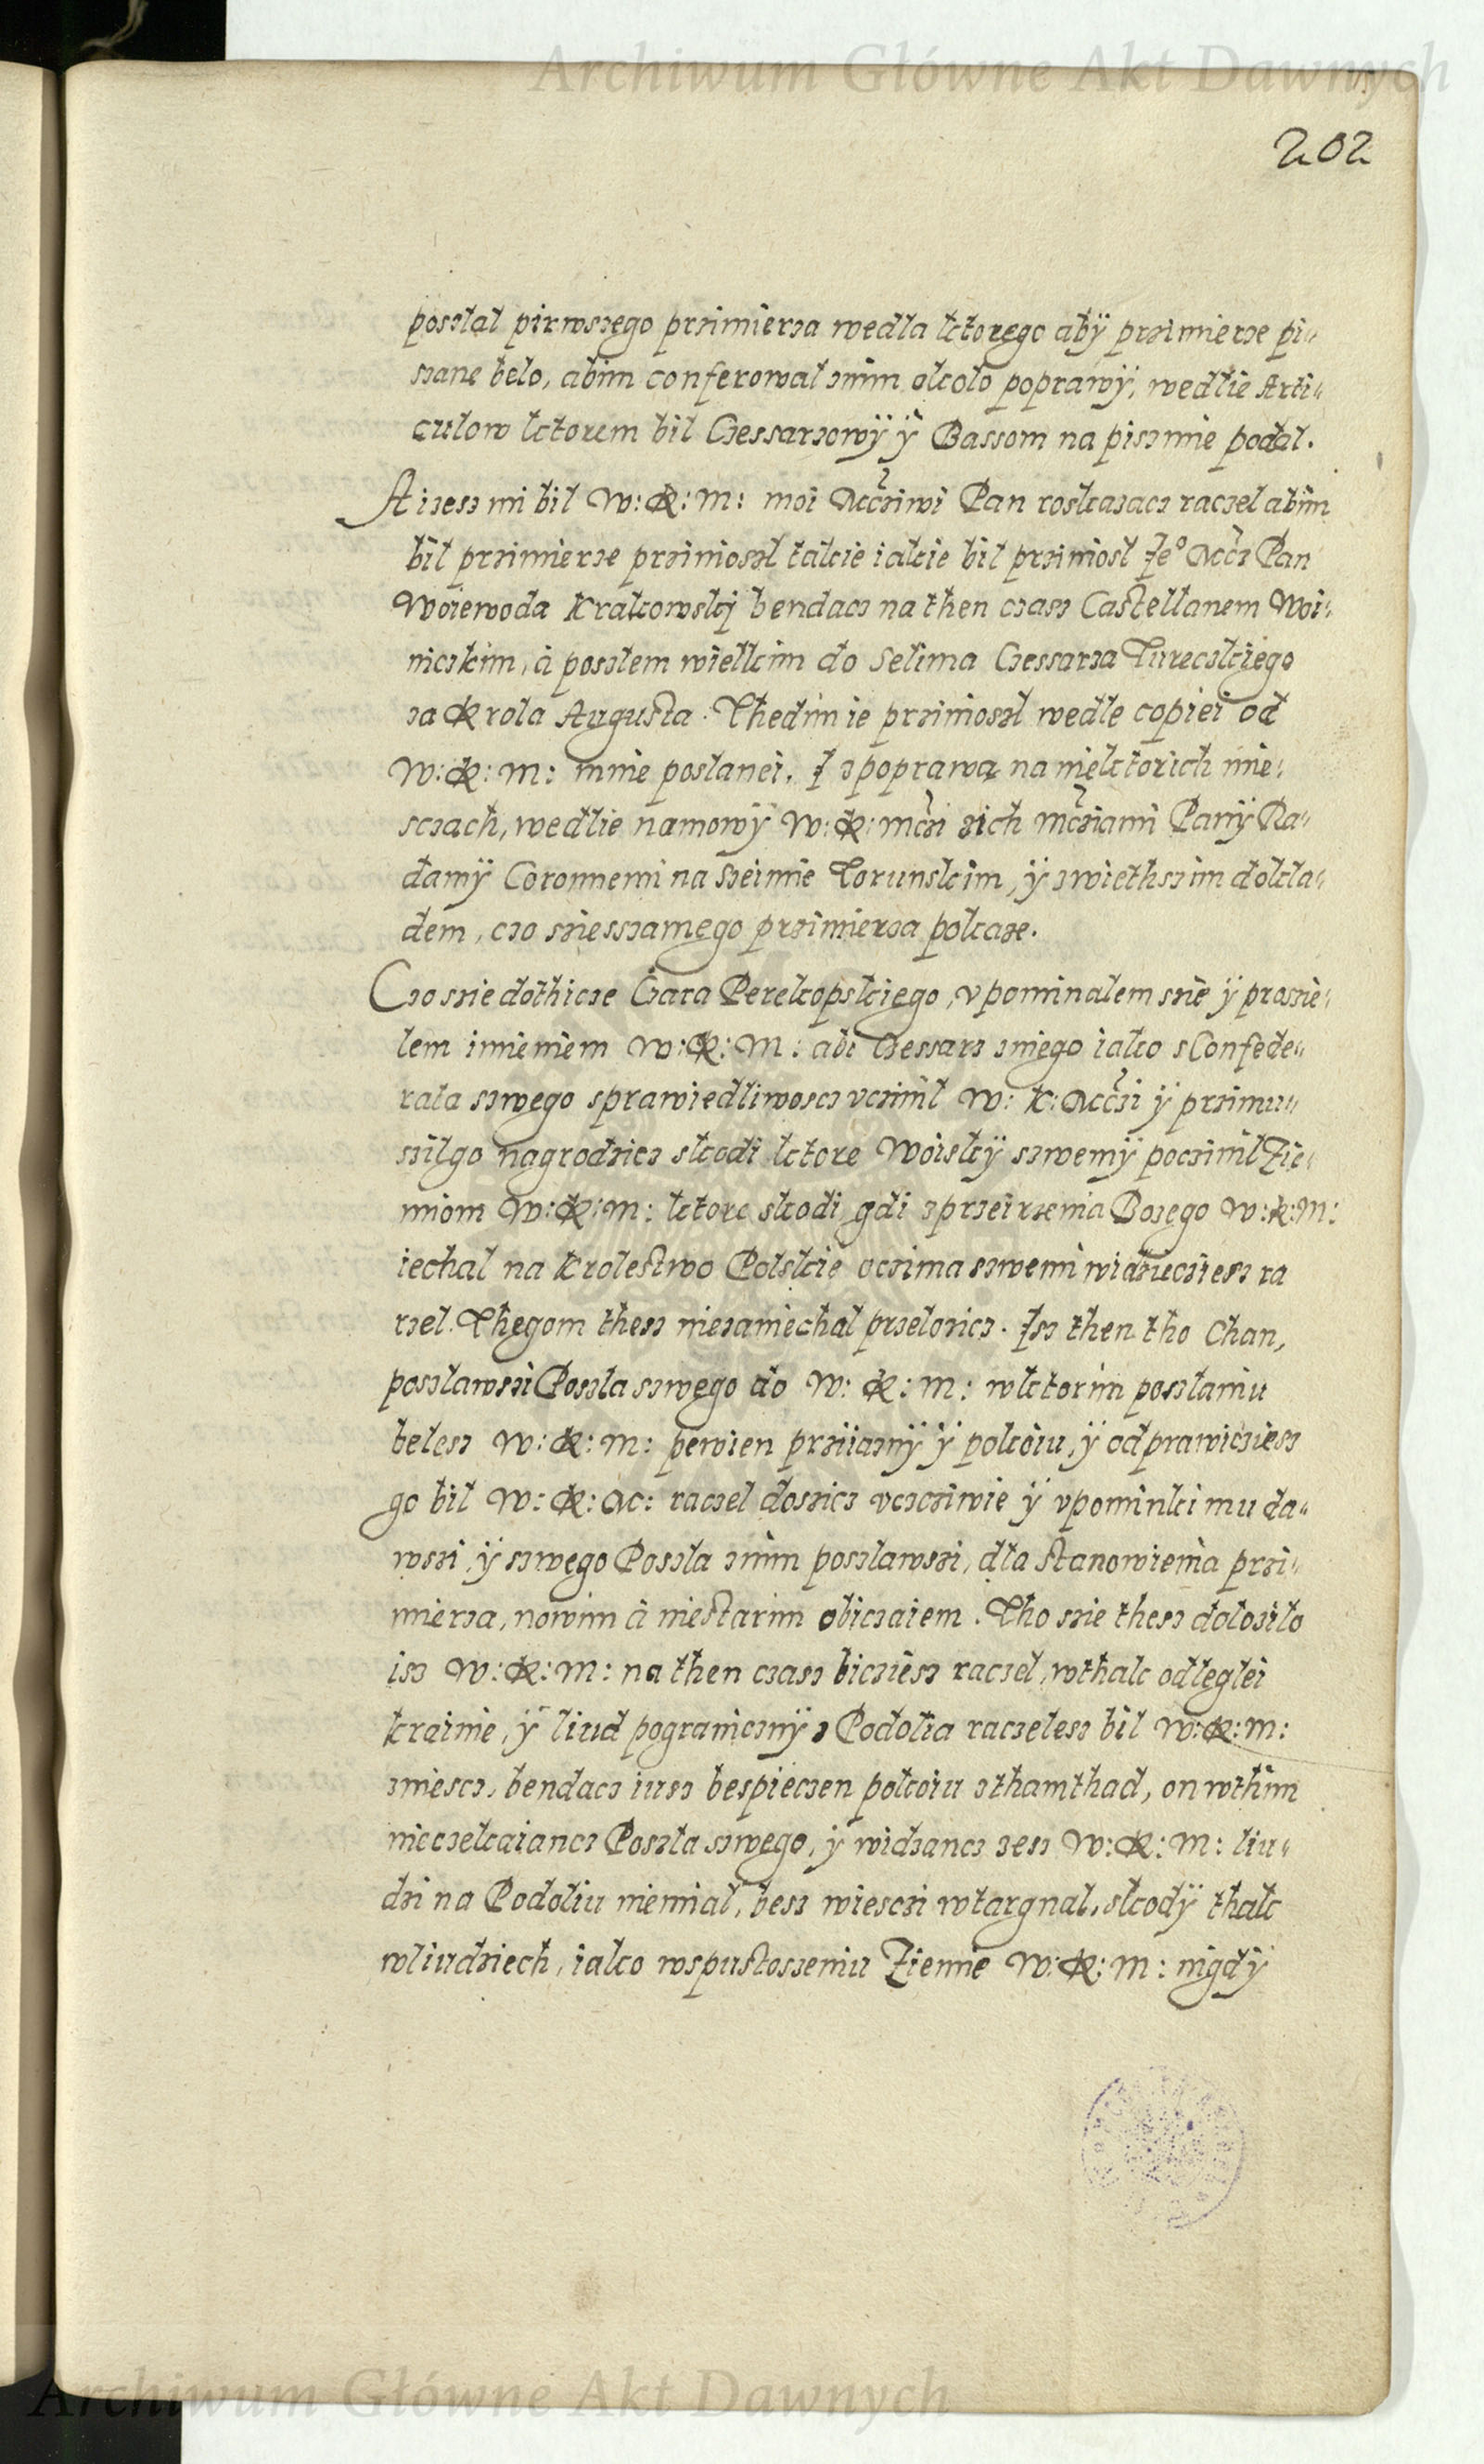 Archiwum Główne Akt Dawnych
202
poszlal pirwszego przimierza wedla ktorego abÿ przimierze pi„
szane belo, abim conferowal znim okolo poprawÿ, wedlie Arti„
culow ktorem bil Czessarzowÿ ÿ Bassom na pisznie podal.
A izesz mi bil W: K: M: moi Mczsiwi Pan roskazacz raczel abim
bil przimierze przinioszl takie iakie bil prziniosl Je° Mcz Pan
Woiewoda Krakowskj bendacz na then czasz Castellanem Woi„
niczkim, à poszlem wielkim do Selima Czessarza Tureczkiego
za Krola Augusta. Thedim ie przinioszl wedle copiei od
W: K: M: mnie poslanei. I zpoprawą na niektorich mie„
sczach, wedlie namowÿ W: K: Mczi zich Mcziami Panÿ Ra„
damÿ Coronnemi na Szeimie Torunskim, ÿ zwiethszim dokla„
dem, czo sziesszamego przimierza pokaze.
Czo szie dothicze Czara Perekopskiego, vpominalem szie ÿ proszie„
lem imieniem W: K: M: abi Czessarz zniego iako sConfede„
rata szwego sprawiedliwoscz vczinil W: K: Mczi ÿ przimu„
szilgo nagrodzicz skodi ktore Woiskÿ szwemÿ poczinil Zie„
miom W: K: M: ktore skodi gdi zprzeirzenia Bozego W: K: M:
iechal na Krolestwo Polskie oczima szwemi widzieczies ra
czel. Thegom thesz niezaniechal przelozicz. Isz then tho Chan,
poszlawszi Poszla szwego do W: K: M: wktorim poszlaniu
belesz W: K: M: pewien prziiaznÿ ÿ pokoiu, ÿ odprawicziesz
go bil W: K: M: raczel doszicz vczcziwie ÿ vpominki mu da„
wszi, ÿ szwego Poszla znim poszlawszi, dla stanowienia przi„
mierza, nowim à niestarim obiczaiem. Tho szie thesz dolozilo
isz W: K: M: na then czasz bicziesz raczel, wthak odleglei
krainie, ÿ liud pograniczny z Podolia raczelesz bil W: K: M:
zniescz, bendacz iusz bespieczen pokoiu zthamthad, on wthim
nieczekaiancz Poszla szwego, ÿ widzancz zesz W: K: M: liu„
dzi na Podoliu niemial, besz wiesczi wtargnal, skodÿ thak
wliudziech, iako wspustoszeniu Ziemie W: K: M: nigdÿ
Archiwum Główne Akt Dawnych